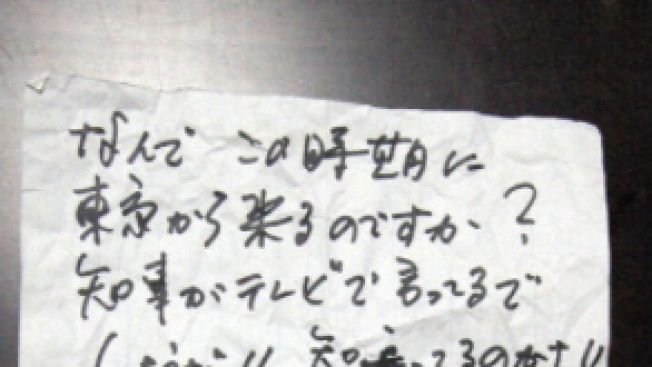 なんで この時期に
東京から来るのですか?
知事がテレビで言ってるで
しょうが!! 知